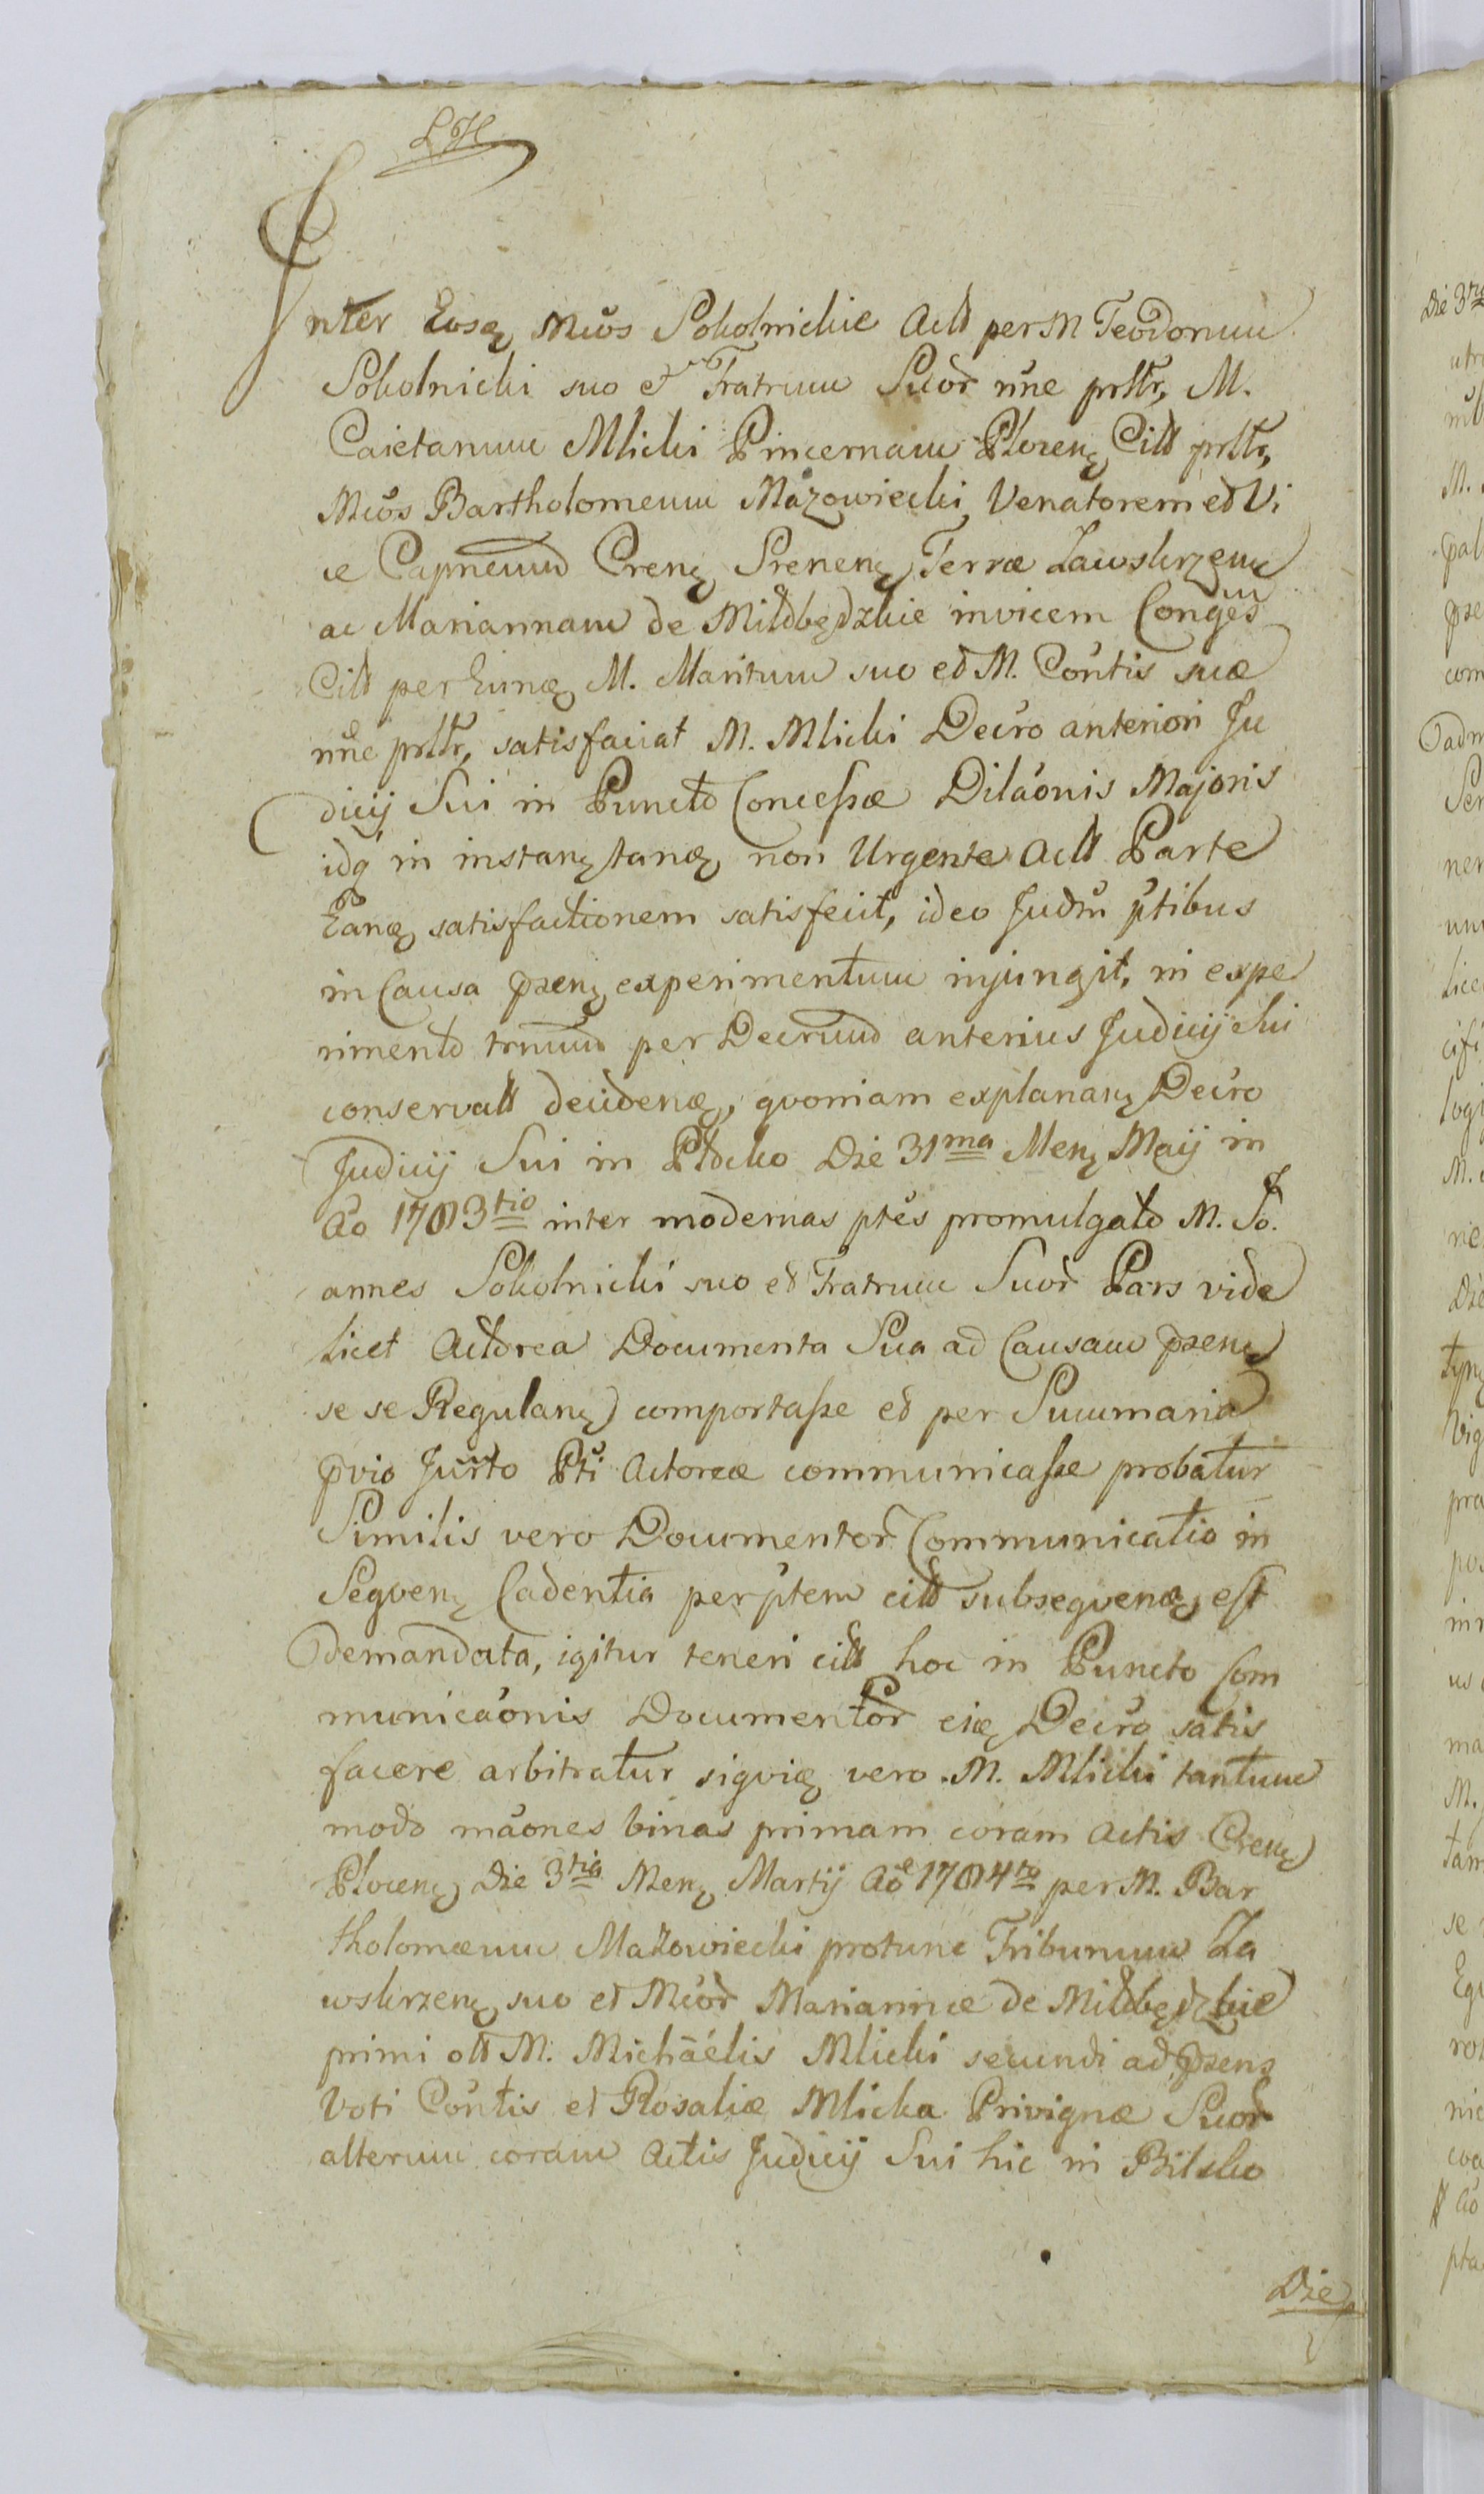 LH
Inter Eosq Mcos Sokolnickie Actt per M Teodorum
Sokolnicki suo et Fratrum Suor nne prttr, M.
Caietanum Mlicki Pincernam Plocen Citt prttr,
Mcos Bartholomeum Mazowiecki Venatorem et Vi
ce Capneum Cren Srenen Terræ Zawskrzen
ac Mariannam de Mitdbędzkie invicem Conges
Citt per Eunq M. Maritum suo et M. Contis suæ
nne prttr, satisfaciat M. Mlicki Decro anteriori Ju
dicij Sui in Puncto Concessæ Dilaonis Majoris
idq in instan tanq non Urgente Actt Parte
Eanq satisfactionem satisfecit, ideo Judm ptibus
in Causa pzen experimentum injungit, in expe
rimento trnum per Decrum anterius Judicij Sui
conservatt decidenq, qvoniam explanan Decro
Judicij Sui in Płocko Die 31ma Men Maij in
Ao 1783tio inter modernas ptes promulgato M. Jo.
annes Sokolnicki suo et Fratrum Suor Pars vide
licet Actorea Documenta Sua ad Causam pzen
se se Regulan comportasse et per Summaria
pvio Jurto Pti Actoreæ communicasse probatur
Similis vero Documentor Communicatio in
Seqven Cadentia per ptem citt subseqvenq est
demandata, igitur teneri citt hoc in Puncto Com
municaonis Documentor eiq Decro satis
facere arbitratur siqviq vero M. Mlicki tantum
modo maones binas primam coram Actis Cren
Plocen Die 3tia Men Martij Ao 1784to per M. Bar
tholomæum Mazowiecki protunc Tribunum Za
wskrzen suo et Mcor Mariannæ de Mitdbędzkie
primi ott M. Michäélis Mlicki secundi ad pzens
Voti Contis et Rosaliæ Mlicka Privignæ Suor
alterum coram Actis Judicij Sui hic in Bilsko
Die
Die 3tia